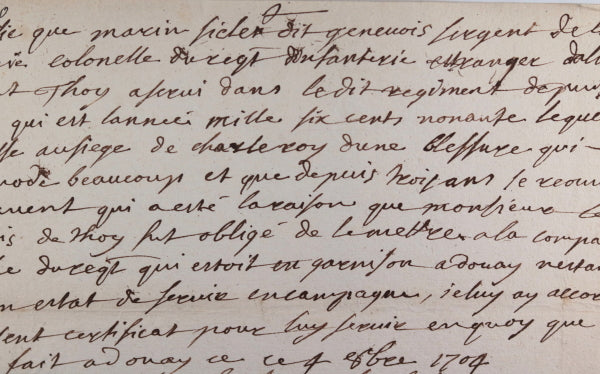 fie que marin sicler dit genevois sergent de l
colonelle du regt dinfanterie estranger dal
t Thoy a servi dans le dit regiment depuis
qui est lannee mille six cents nonante leque
au siege de charleroy dune blessure qui-
mode beaucoup et que depuis trois ans se
ment qui a esté la raison que monsieur le
is de Thoy fut obligé de le mettre a la compa
e du regt qui estoit en garnison a douay nesta
n estat de servir en campagne, je luy ay accor
sent certificat pour luy servir en quoy que
fait a douay ce ce 4 8bre 1704